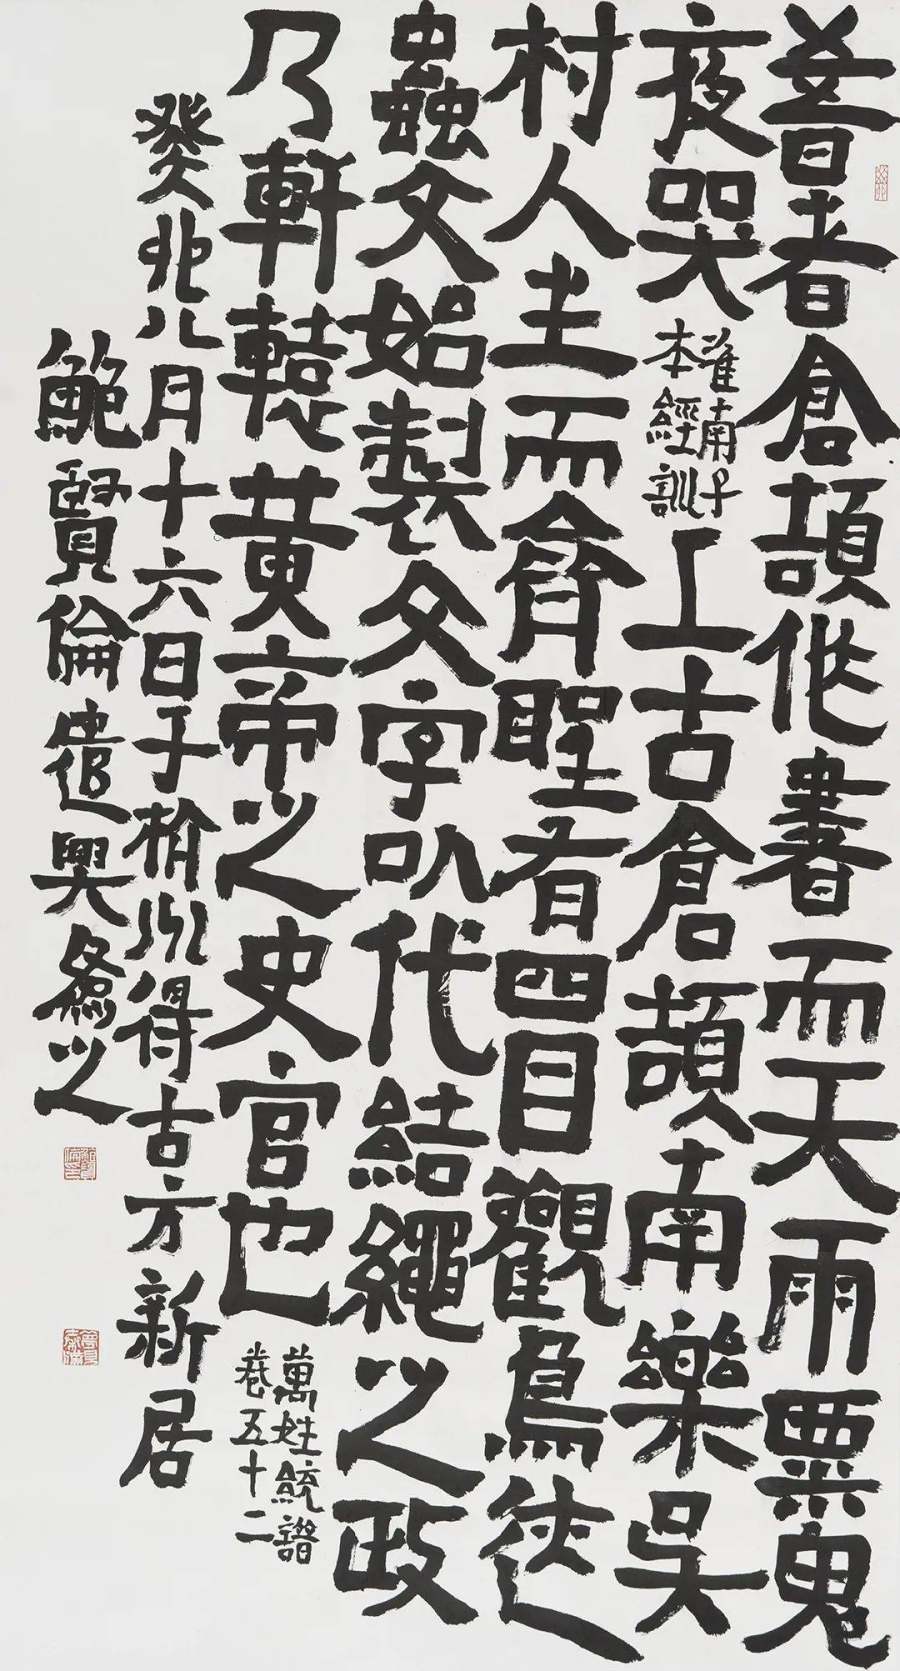 昔者倉頡作書而天雨粟鬼
夜哭
淮南子
本經訓
上古倉頡南樂吳
村人生而齊聖有四目觀鳥迹
蟲文始製文字以代結繩之政
乃軒轅黃帝之史官也
萬姓統譜
卷五十二
癸卯八月十六日于州得古方新居
鮑賢倫遣興之